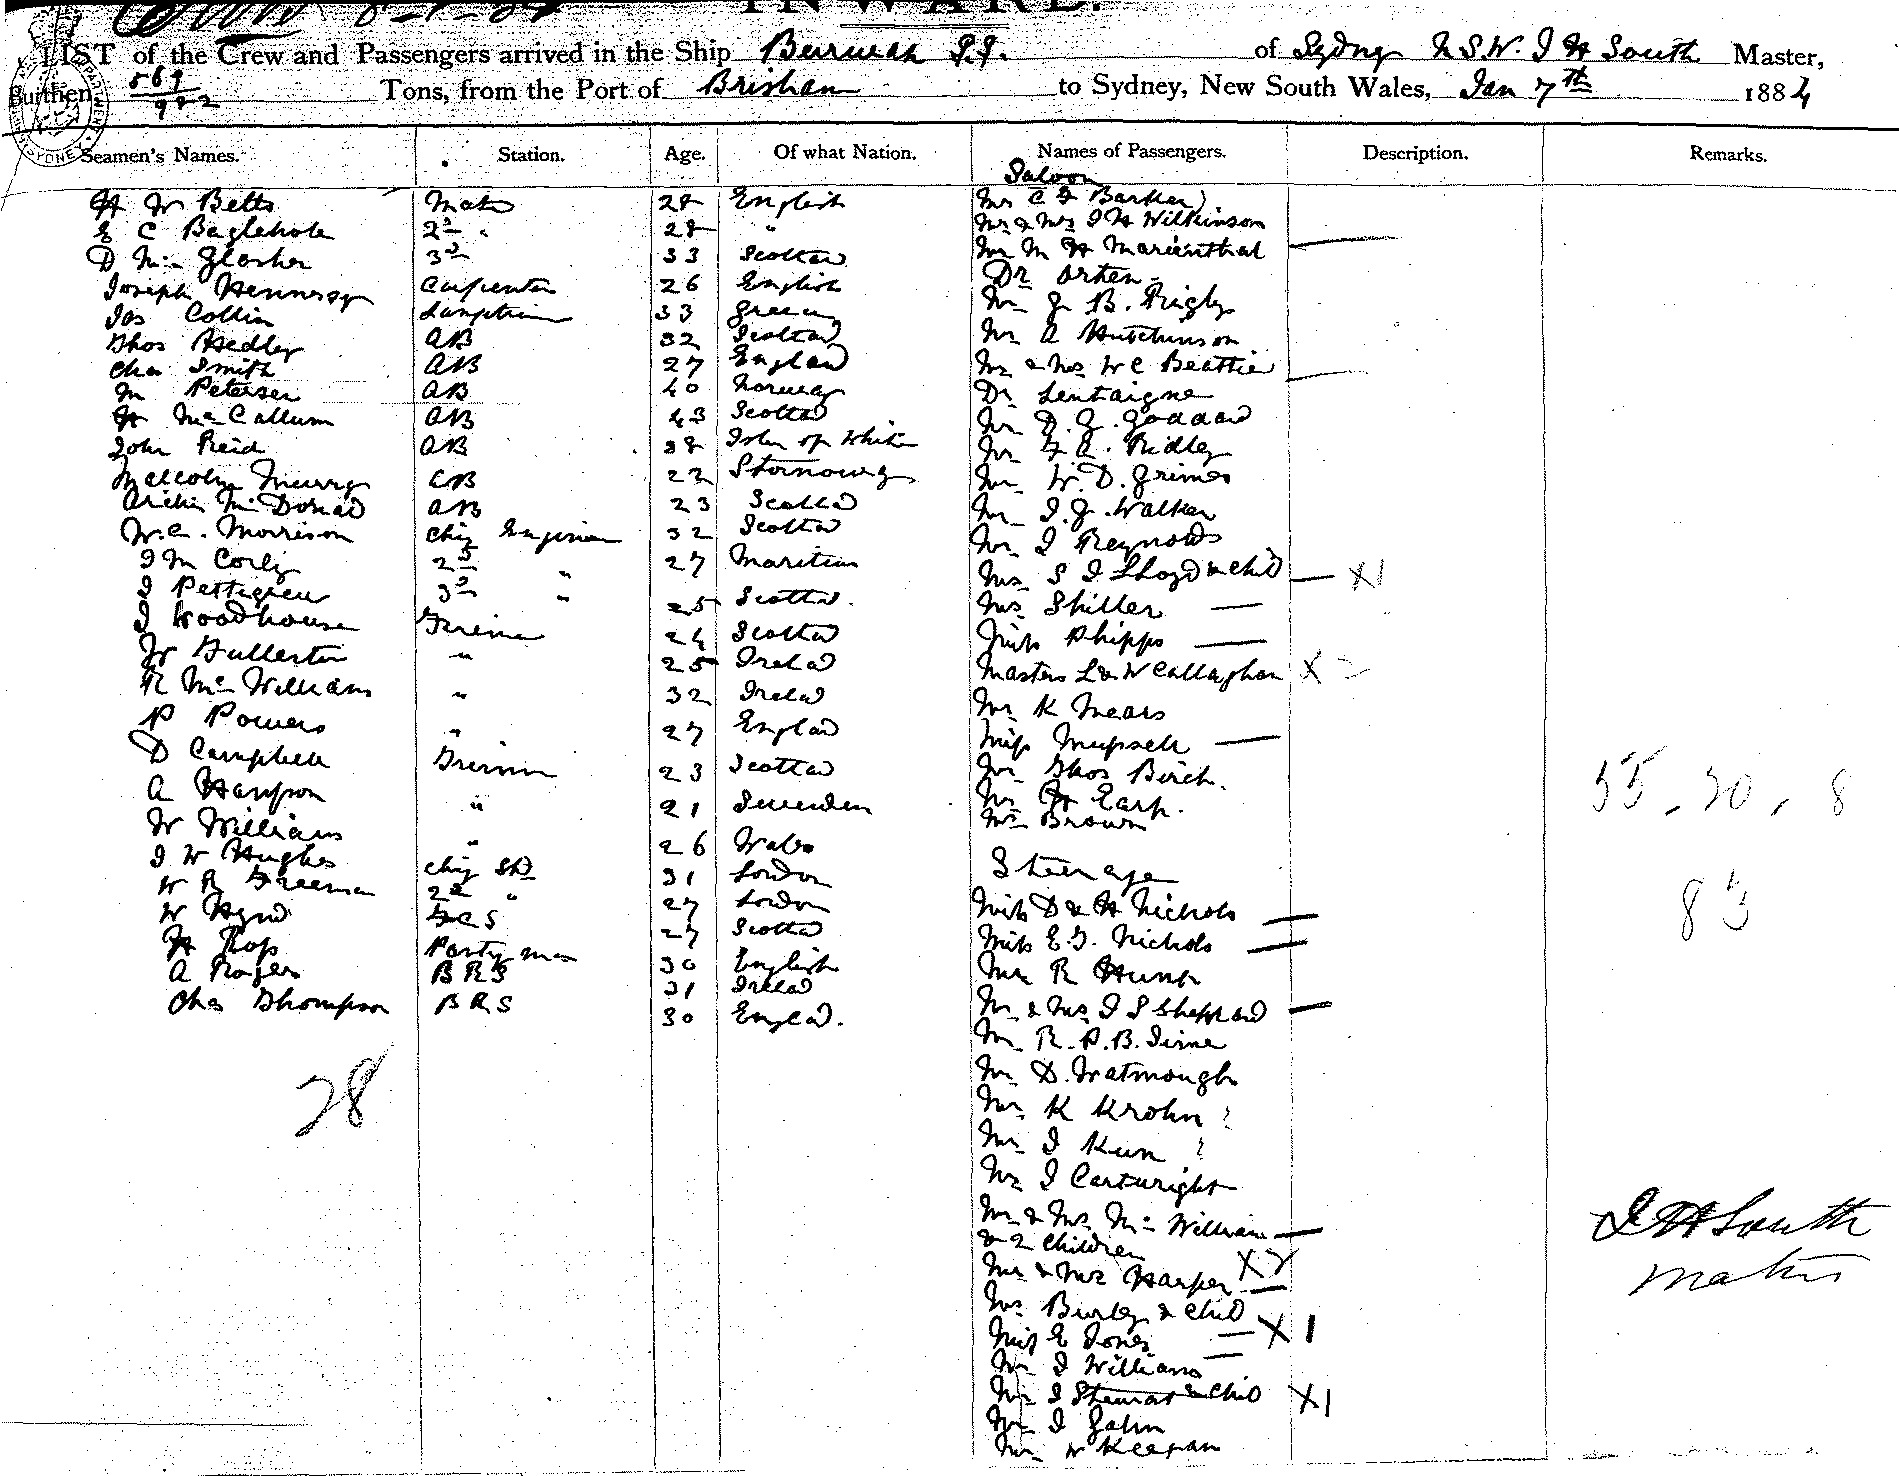 INWARD.
LIST of the Crew and Passengers arrived in the Ship Burwah S.S. of Sydney N.S.W. J H South Master,
Burthen 569/982 Tons, from the Port of Brisban to Sydney, New South Wales, Jan 7th 1884
Seamen's Names. Station. Age. Of what Nation. Names of Passengers. Description. Remarks.
Saloon
H W Betts Mate 28 English Mr C F Barker
E C Baglehole 2nd " 28 " Mr & Mrs J H Wilkinson
D Mc Glashen 3rd 33 Scotlad Mr M H Marienthal
Joseph Hennessy Carpenter 26 English Dr Orhen
Jas Collin Lamptrim 33 Greec Mr J B. Rigby
Thos Hedley AB 32 Scotlad Mr A Hutchinson
Chas Smith AB 27 Englad Mr & Mrs W C Beattie
M Petersen AB 40 Norway Dr Lentaigne
H McCallum AB 43 Scotlad Mr D. G. Goddard
John Reid AB 38 Isle of White Mr F A. Ridley
Malcolm Murry AB 22 Stornoway Mr W. D. Grimes
Archie McDonad AB 23 Scotlad Mr J. G. Walker
W.C. Morrison Chif Enginier 32 Scotlad Mr J Reynolds
J M Corly 2nd " 27 Maritius Mrs S J Lloyd & Child — X1
J Pettigrew 3rd " 25 Scotlad. Mrs Skiller —
J Woodhouse Firema 24 Scotlad Miss Phipps —
W Fullerton " 25 Irelad Masters L & W Callaghan X 2
R McWilliams " 32 Irelad Mr K Mears
P Powers " 27 Englad Miss —
D Campbell Trimm 23 Scotlad Mr Thos Birch.
A Hanson " 21 Sweeden Mr H Earp.
W Williams " 26 Wales Mr Brown
Steerage
J W Hughes Chif Std 31 London
W R Freeman 2nd " 27 London Miss D & H Nichols —
W Hynd FCS 27 Scotlad Miss E. J. Nichols —
H Ross Pantry man 30 English Mr R Hunt
A Rogers BRS 31 Irelad Mr & Mrs J S Sheppard —
Chas Thompson BRS 30 Englad. Mr R. P. B.
Mr D. Watmough
28
Mr K Krohn ?
Mr J Kun ?
Mr J Cartwright
Mr & Mrs McWilliam —
& 2 Children X2
Mr & Mrs Harper —
Mrs Burley & Child — X 1
Miss E Jones —
Mr J Williams
Mr J Stewart & Child X1
Mr J Zahn
Mr W Keegan
55 . 20 , 8
83
J H South
Master